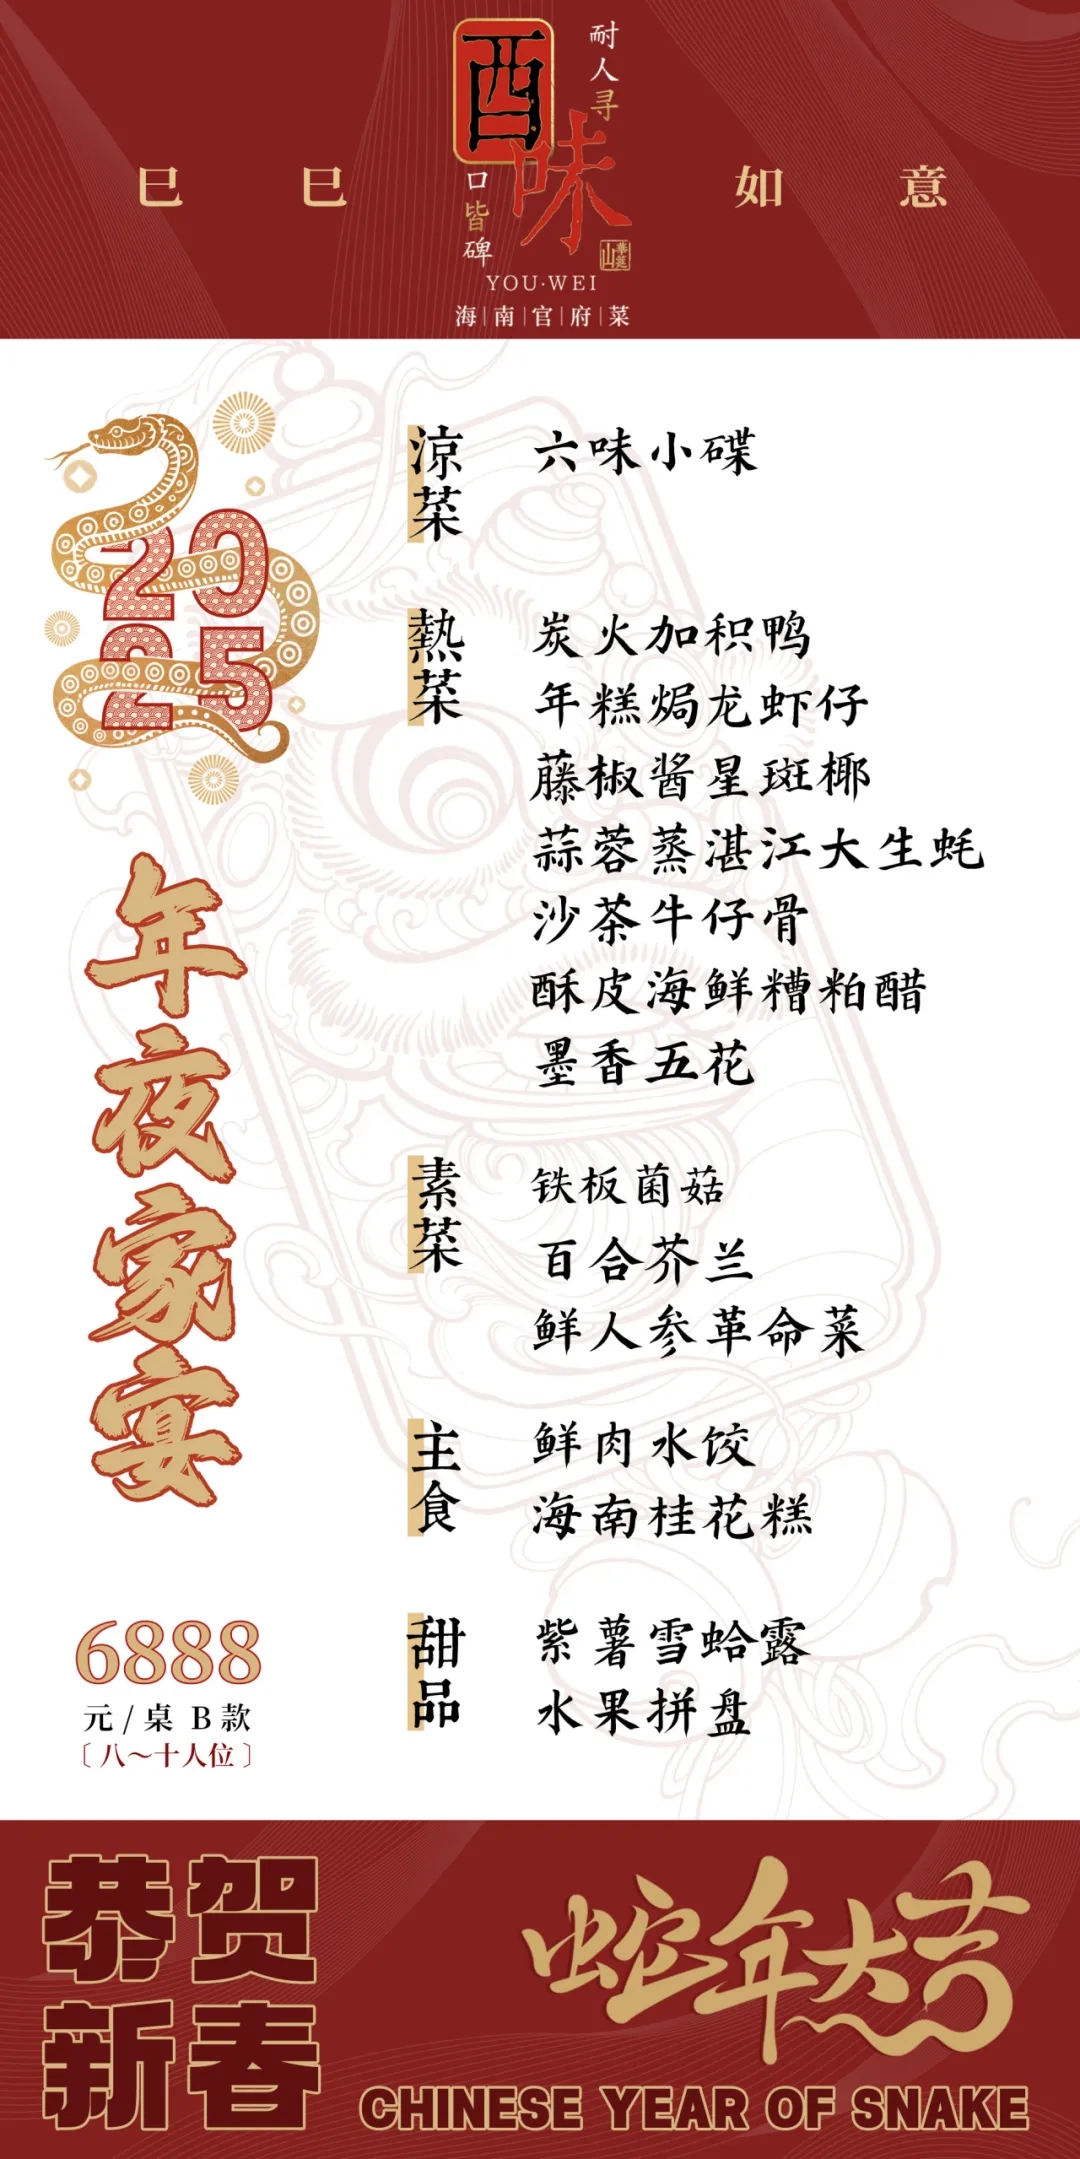 耐人寻
酉味
口皆碑
華筵山
YOU·WEI
海|南|官|府|菜
巳巳如意
2025
年夜家宴
6888
元/桌 B款
〔八～十人位〕
涼菜
六味小碟
熱菜
炭火加积鸭
年糕焗龙虾仔
藤椒酱星斑椰
蒜蓉蒸湛江大生蚝
沙茶牛仔骨
酥皮海鲜糟粕醋
墨香五花
素菜
铁板菌菇
百合芥兰
鲜人参革命菜
主食
鲜肉水饺
海南桂花糕
甜品
紫薯雪蛤露
水果拼盘
恭贺
新春
蛇年大吉
CHINESE YEAR OF SNAKE